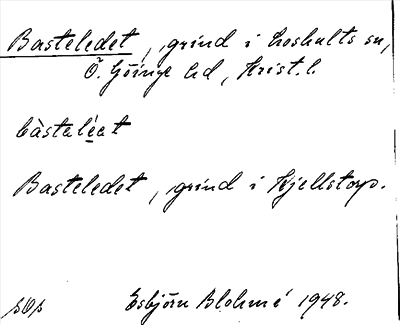 Basteledet, grind i Loshults sn,
Ö. Göinge hd, Krist. l.
bàstaléet
Basteledet, grind i Kjellstorp.
Esbjörn Blohmé 1948.